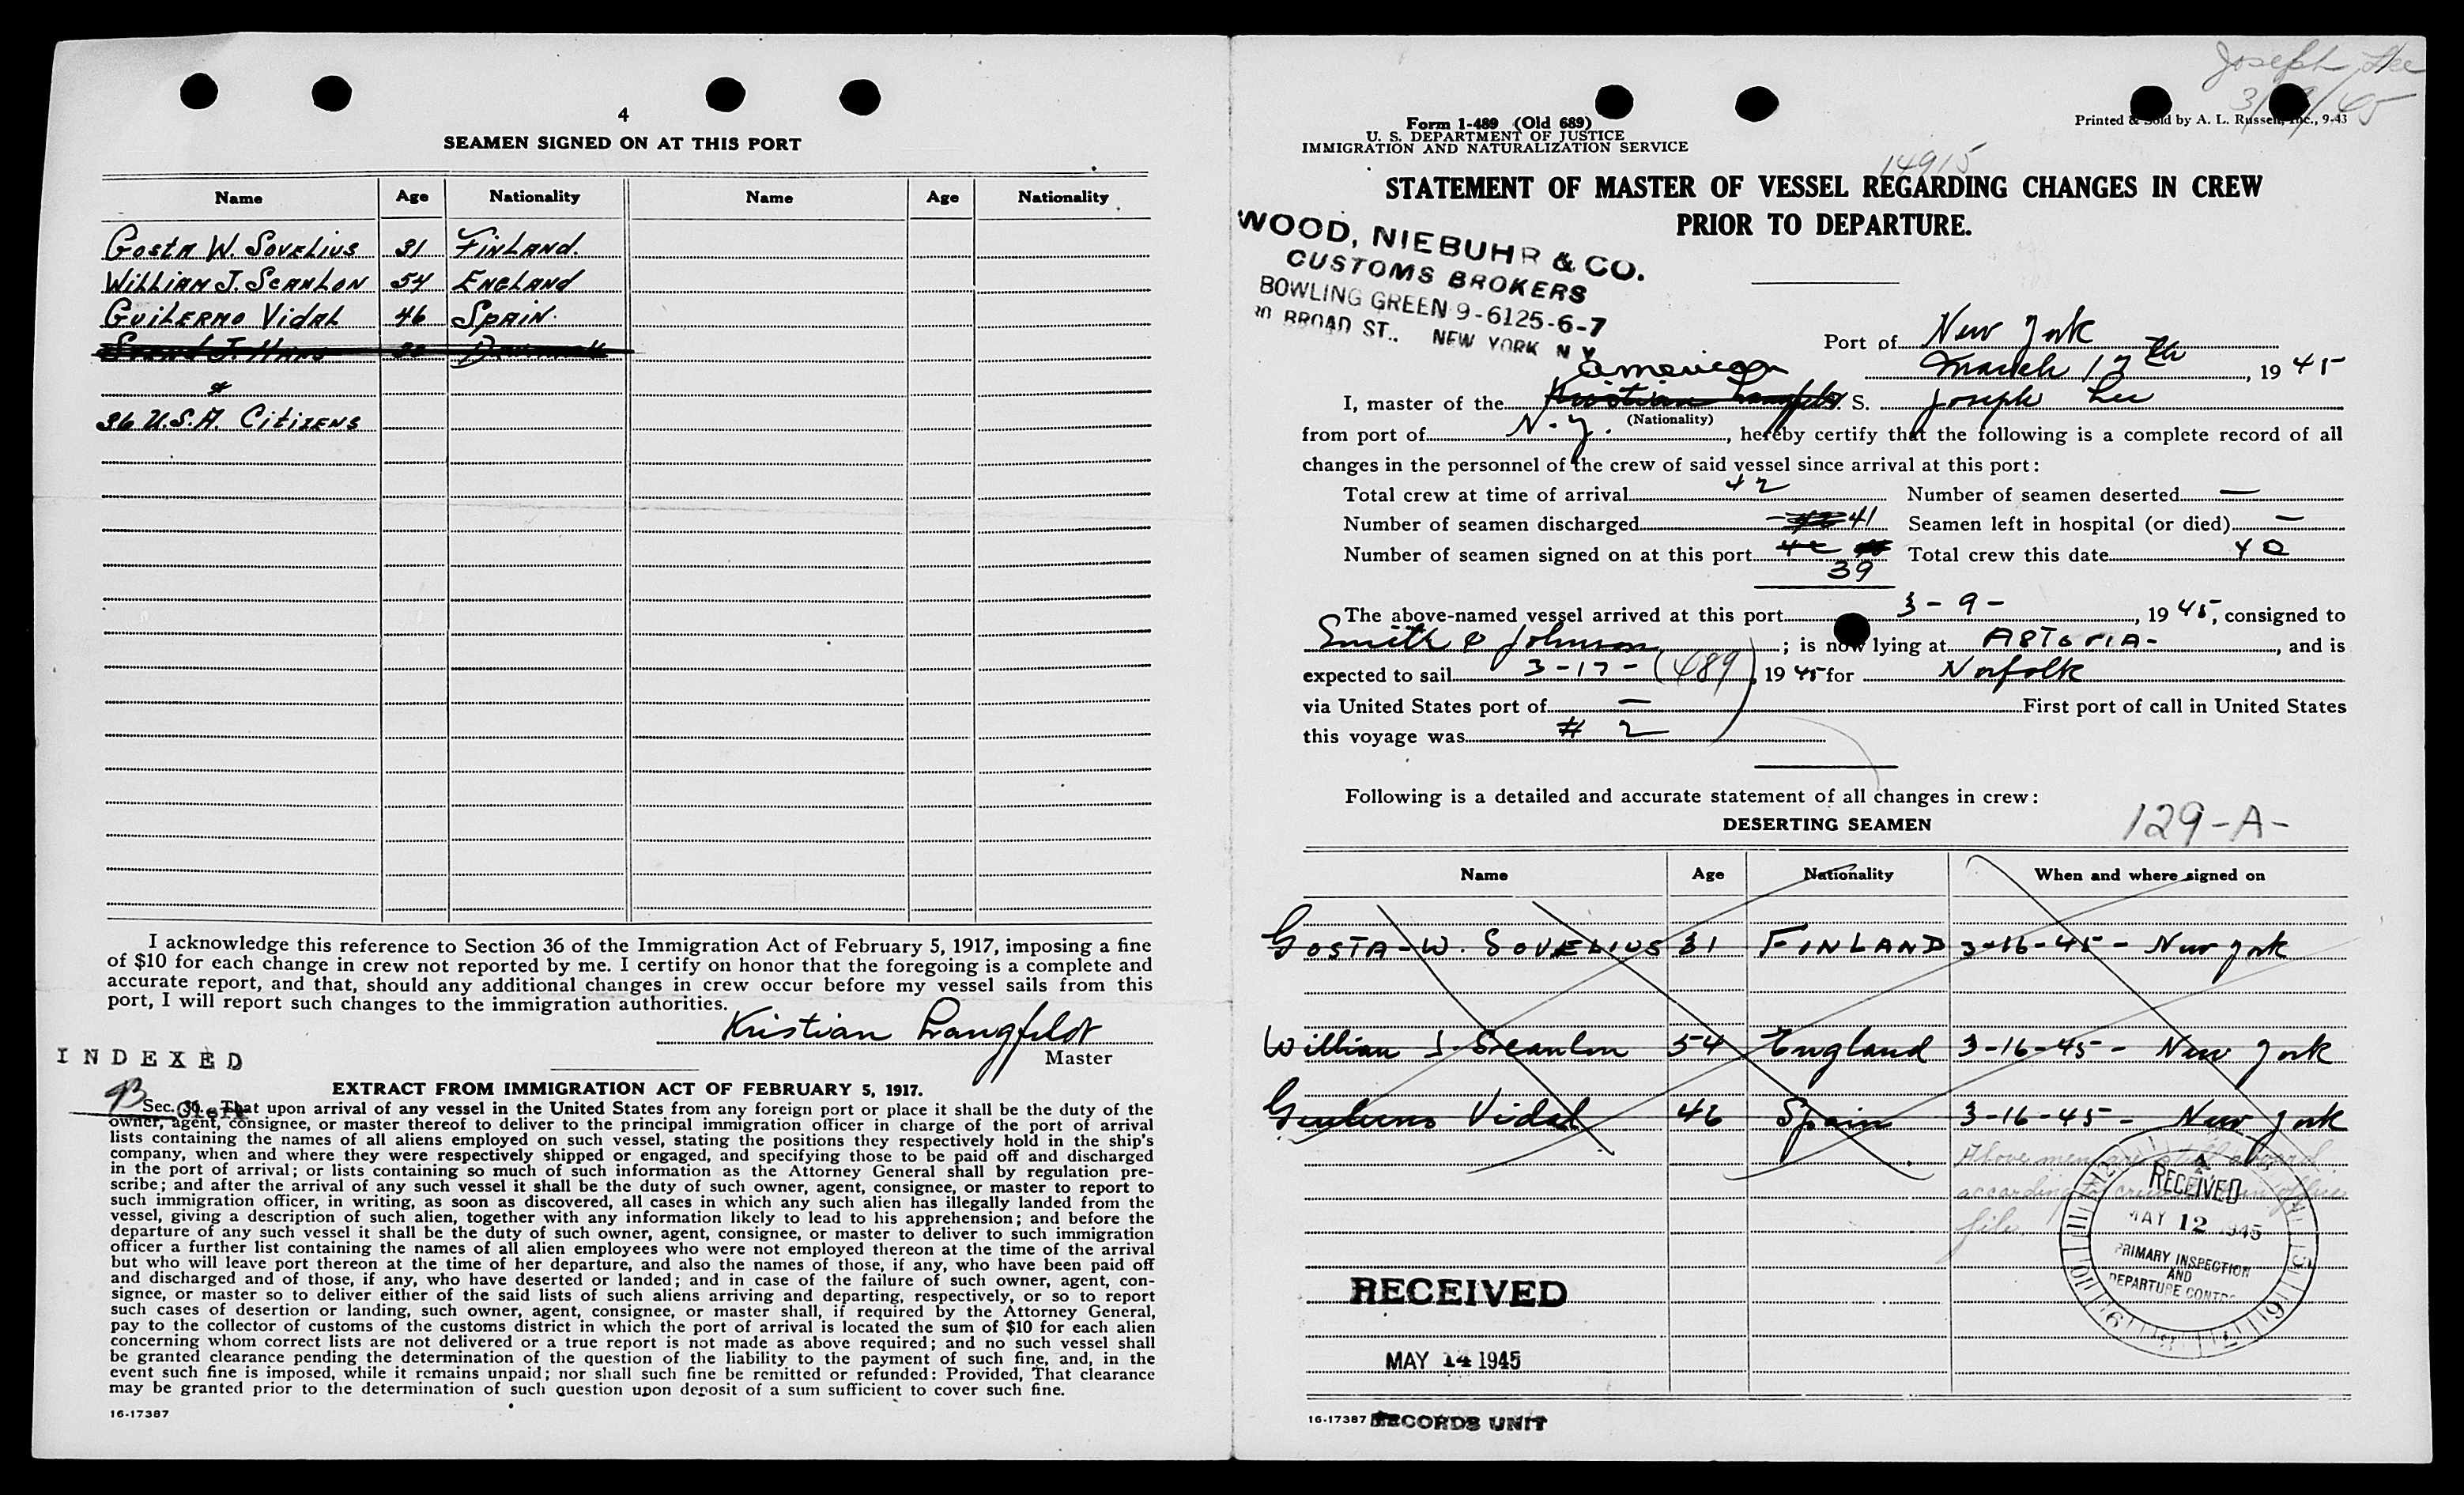 4
SEAMEN SIGNED ON AT THIS PORT
Name Age Nationality Name Age Nationality
Gosta W. Sovelius 31 Finland.
William J. Scanlon 54 England
Guilermo Vidal 46 Spain.
&
36 U.S.A. Citizens
I acknowledge this reference to Section 36 of the Immigration Act of February 5, 1917, imposing a fine
of $10 for each change in crew not reported by me. I certify on honor that the foregoing is a complete and
accurate report, and that, should any additional changes in crew occur before my vessel sails from this
port, I will report such changes to the immigration authorities.
Kristian Langfeldt
Master
INDEXED
EXTRACT FROM IMMIGRATION ACT OF FEBRUARY 5, 1917.
Sec. 36. That upon arrival of any vessel in the United States from any foreign port or place it shall be the duty of the
owner, agent, consignee, or master thereof to deliver to the principal immigration officer in charge of the port of arrival
lists containing the names of all aliens employed on such vessel, stating the positions they respectively hold in the ship's
company, when and where they were respectively shipped or engaged, and specifying those to be paid off and discharged
in the port of arrival; or lists containing so much of such information as the Attorney General shall by regulation pre-
scribe; and after the arrival of any such vessel it shall be the duty of such owner, agent, consignee, or master to report to
such immigration officer, in writing, as soon as discovered, all cases in which any such alien has illegally landed from the
vessel, giving a description of such alien, together with any information likely to lead to his apprehension; and before the
departure of any such vessel it shall be the duty of such owner, agent, consignee, or master to deliver to such immigration
officer a further list containing the names of all alien employees who were not employed thereon at the time of the arrival
but who will leave port thereon at the time of her departure, and also the names of those, if any, who have been paid off
and discharged and of those, if any, who have deserted or landed; and in case of the failure of such owner, agent, con-
signee, or master so to deliver either of the said lists of such aliens arriving and departing, respectively, or so to report
such cases of desertion or landing, such owner, agent, consignee, or master shall, if required by the Attorney General,
pay to the collector of customs of the customs district in which the port of arrival is located the sum of $10 for each alien
concerning whom correct lists are not delivered or a true report is not made as above required; and no such vessel shall
be granted clearance pending the determination of the question of the liability to the payment of such fine, and, in the
event such fine is imposed, while it remains unpaid; nor shall such fine be remitted or refunded: Provided, That clearance
may be granted prior to the determination of such question upon deposit of a sum sufficient to cover such fine.
16-17387
Joseph Lee
Form 1-489 (Old 689)
U. S. DEPARTMENT OF JUSTICE
IMMIGRATION AND NATURALIZATION SERVICE
Printed & Sold by A. L. Russell, Inc., 9-43
14915
STATEMENT OF MASTER OF VESSEL REGARDING CHANGES IN CREW
PRIOR TO DEPARTURE.
WOOD, NIEBUHR & CO.
CUSTOMS BROKERS
BOWLING GREEN 9-6125-6-7
BROAD ST., NEW YORK N Y
Port of New York
March 17th, 1945
American
I, master of the Kristian Langfeldt S. S. Joseph Lee
(Nationality)
from port of N.Y., hereby certify that the following is a complete record of all
changes in the personnel of the crew of said vessel since arrival at this port:
Total crew at time of arrival 42 Number of seamen deserted —
Number of seamen discharged 41 Seamen left in hospital (or died) —
Number of seamen signed on at this port 39 Total crew this date 40
The above-named vessel arrived at this port 3-9-, 1945, consigned to
Smith & Johnson; is now lying at Astoria-, and is
expected to sail 3-17- (489), 1945 for Norfolk
via United States port of — First port of call in United States
this voyage was # 2
Following is a detailed and accurate statement of all changes in crew:
DESERTING SEAMEN
129-A-
Name Age Nationality When and where signed on
Gosta-W. Sovelius 31 Finland 3-16-45- New York
William J. Scanlon 54 England 3-16-45- New York
Guilermo Vidal 46 Spain 3-16-45- New York
Above men are still aboard
according to crew in
file.
RECEIVED
MAY 12 1945
PRIMARY INSPECTION
AND
DEPARTURE CONTROL
RECEIVED
MAY 14 1945
16-17387 RECORDS UNIT